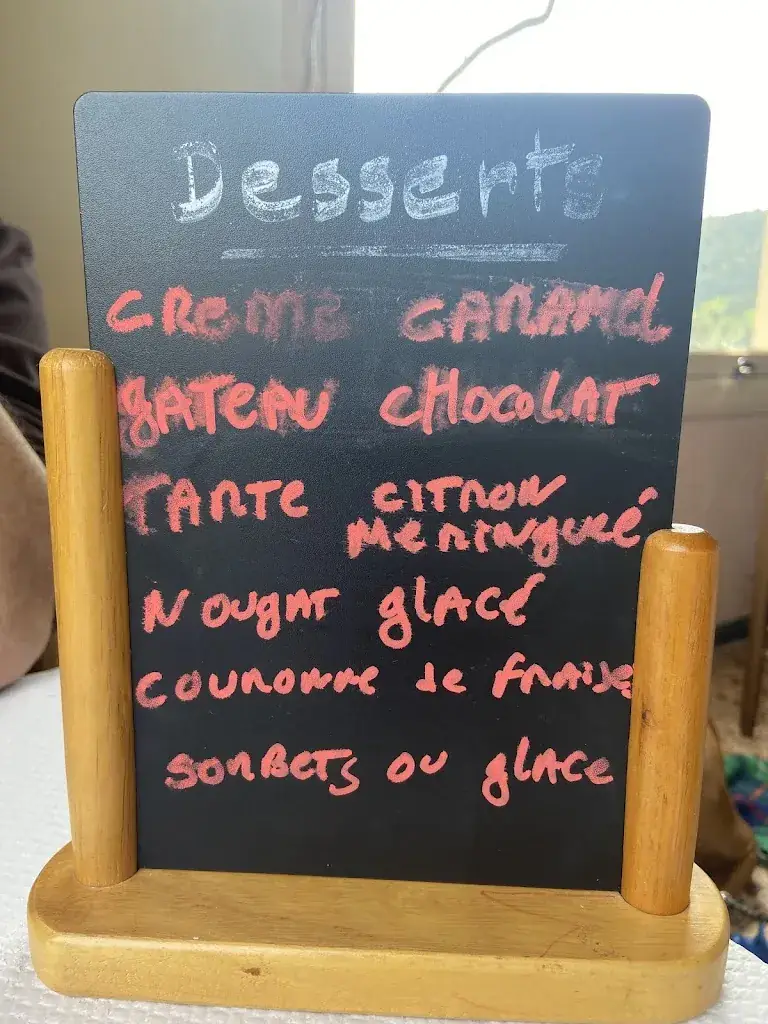 Desserts
CREME CARAMEL
gATEAU CHOCOLAT
TARTE CITRON
MERINgUÉ
NOUgAT gLACÉ
COURONNE de FRAISE
SORBETS OU gLACE